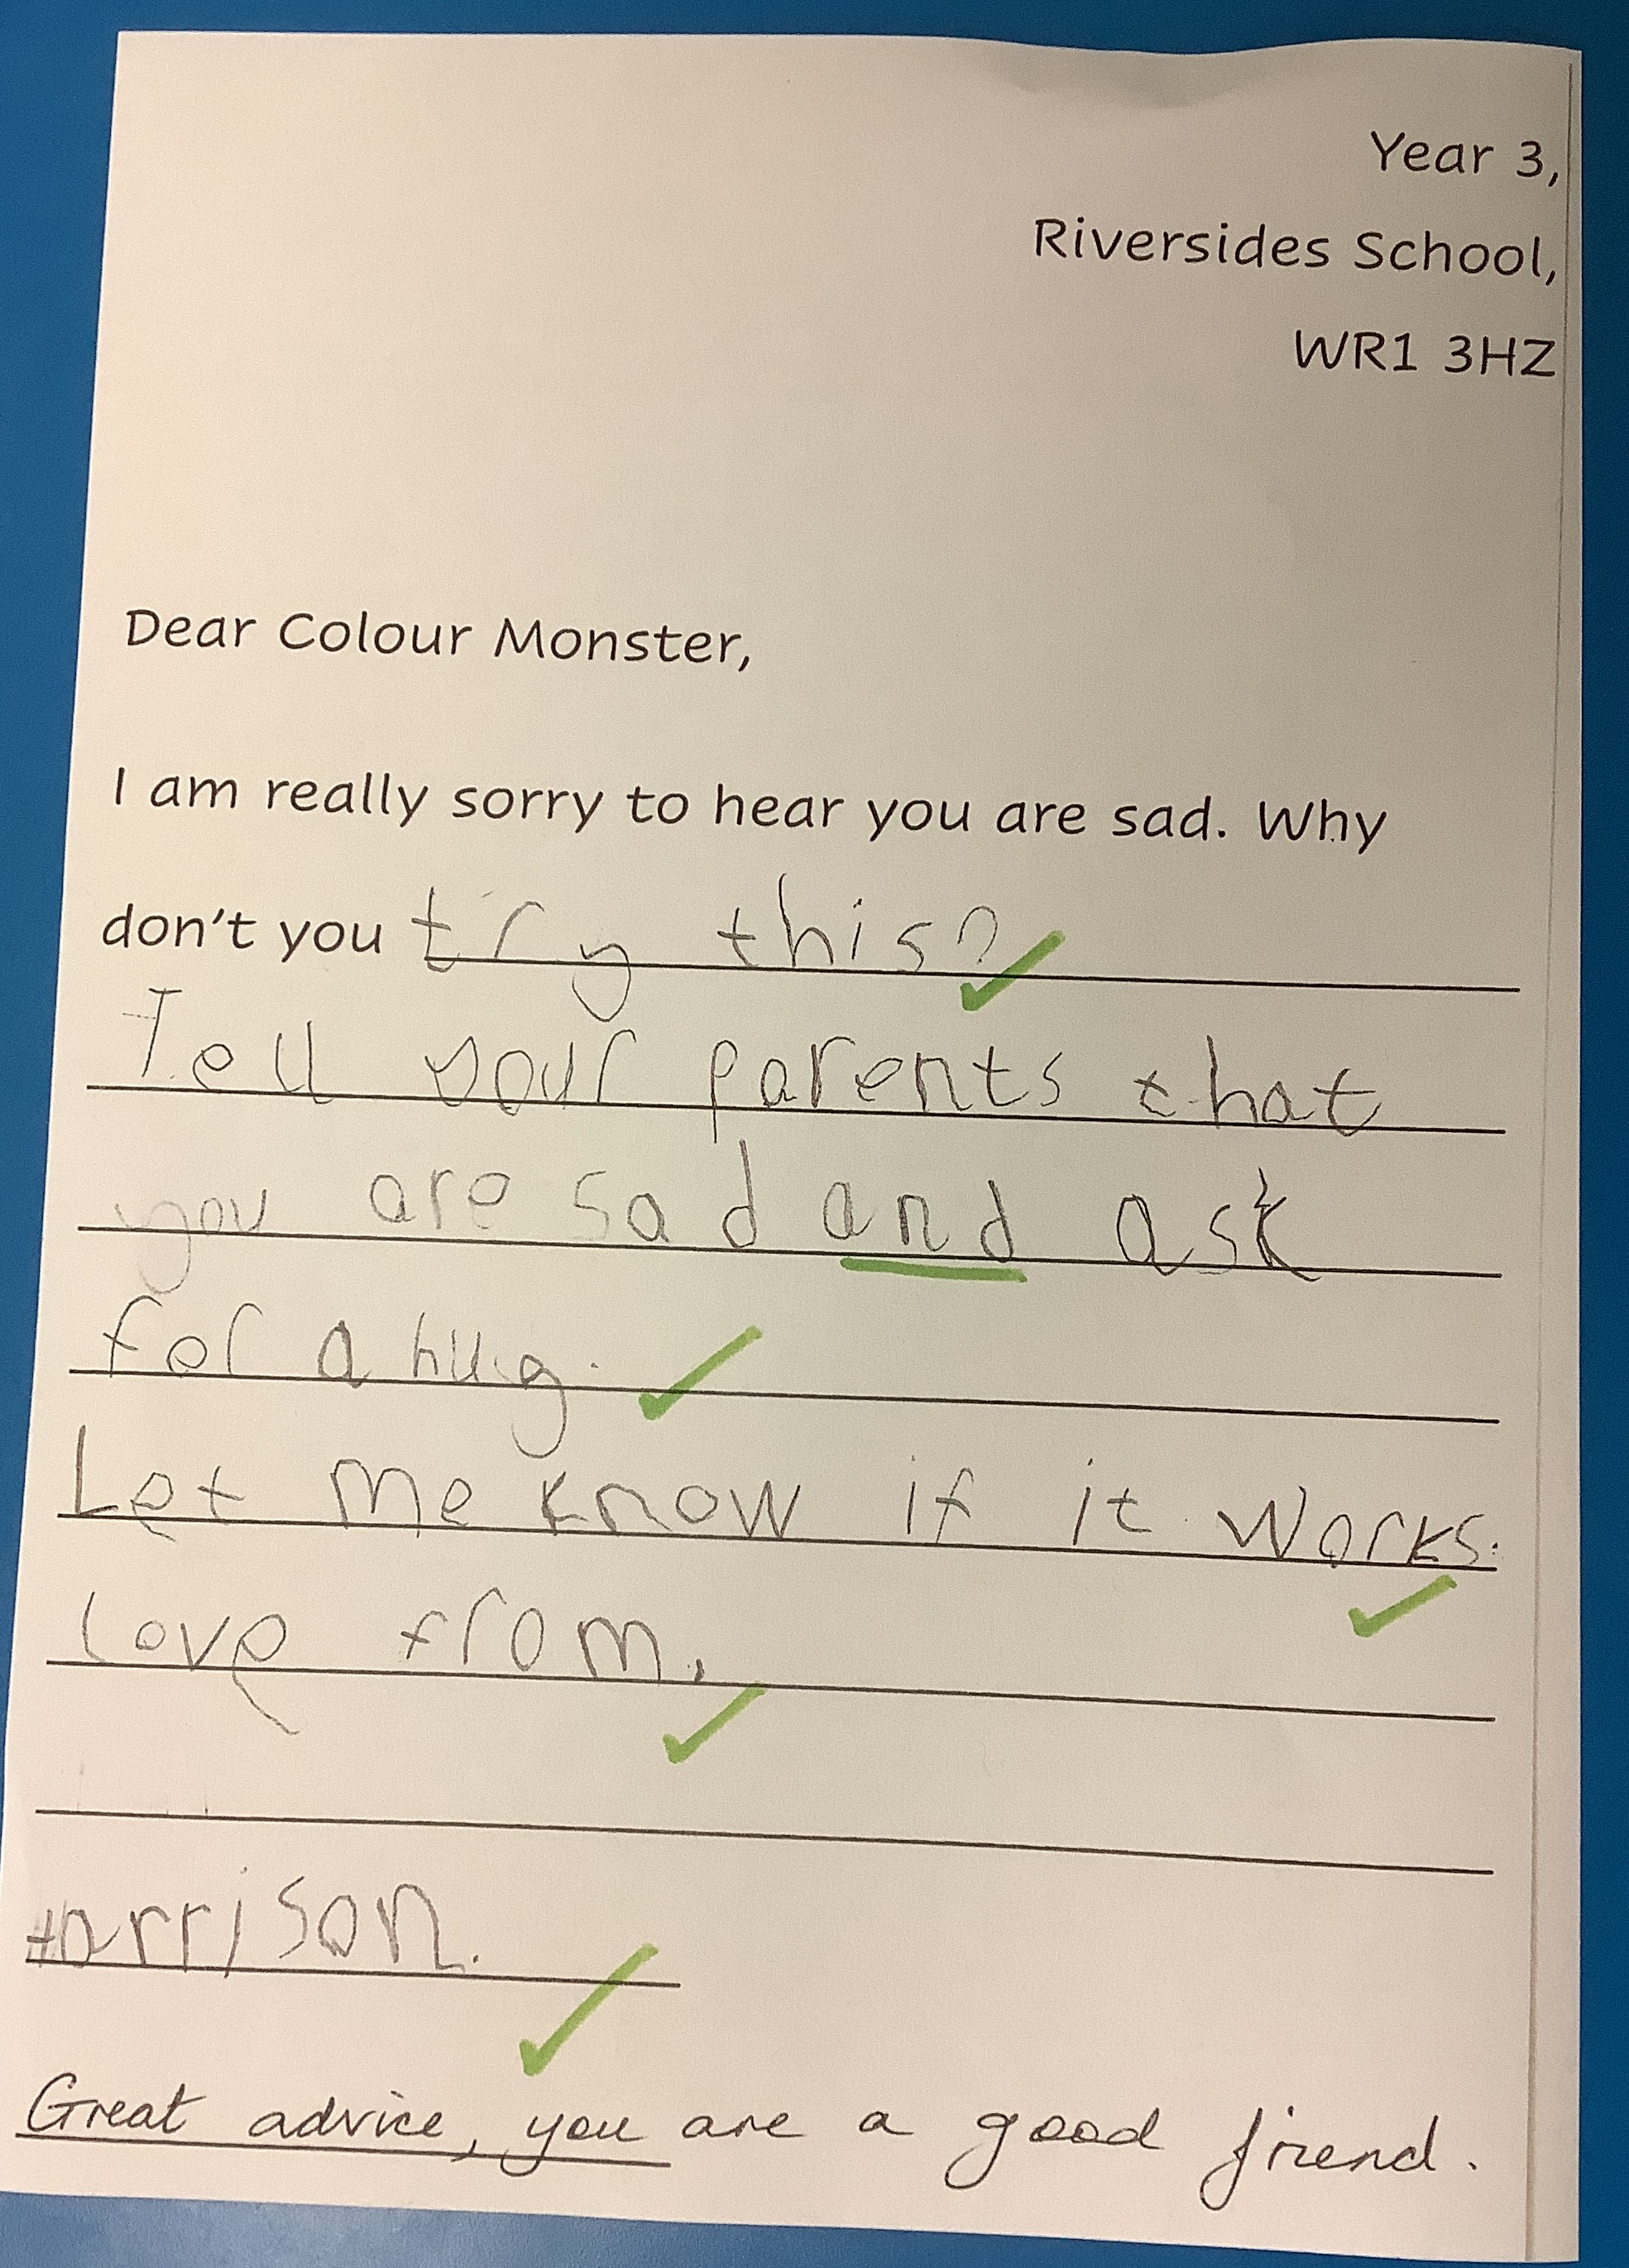 Year 3,
Riversides School,
WR1 3HZ
Dear Colour Monster,
I am really sorry to hear you are sad. Why
don't you try this?
Tell your parents that
you are sad and ask
for a hug.
Let me know if it works.
Love from,
Harrison.
Great advice, you are a good friend.